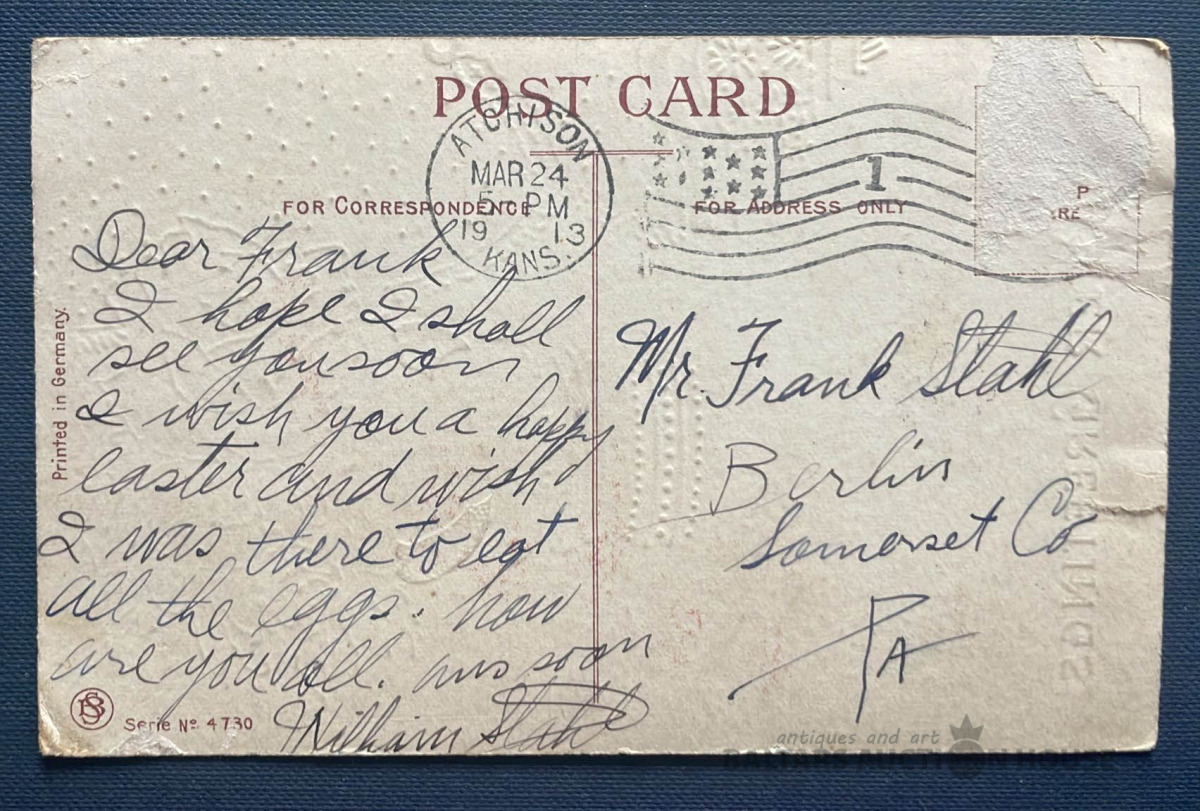 POST CARD
ATCHISON
MAR 24
5 - PM
19 13
KANS.
1
FOR CORRESPONDENCE
FOR ADDRESS ONLY
P
RE
Dear Frank
I hope I shall
see you soon
I wish you a happy
easter and wish
I was there to eat
all the eggs. how
are you all. ans soon
William Stahl
Mr. Frank Stahl
Berlin
Somerset Co
PA
Printed in Germany.
Serie No. 4730
GREETINGS
antiques and art